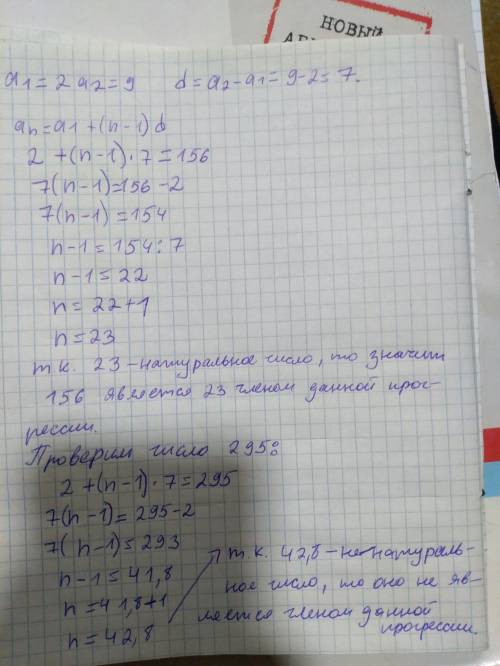 НОВЫЙ
a1 = 2 a2 = 9 d = a2 - a1 = 9 - 2 = 7.
an = a1 + (n-1) d
2 + (n-1) · 7 = 156
7(n-1) = 156 - 2
7(n-1) = 154
n-1 = 154 : 7
n-1 = 22
n = 22 + 1
n = 23
т.к. 23 - натуральное число, то значит
156 является 23 членом данной прог-
рессии.
Проверим число 295:
2 + (n-1) · 7 = 295
7(n-1) = 295 - 2
7(n-1) = 293
n-1 = 41,8
n = 41,8 + 1
n = 42,8
т.к. 42,8 - не натураль-
ное число, то оно не яв-
ляется членом данной
прогрессии.